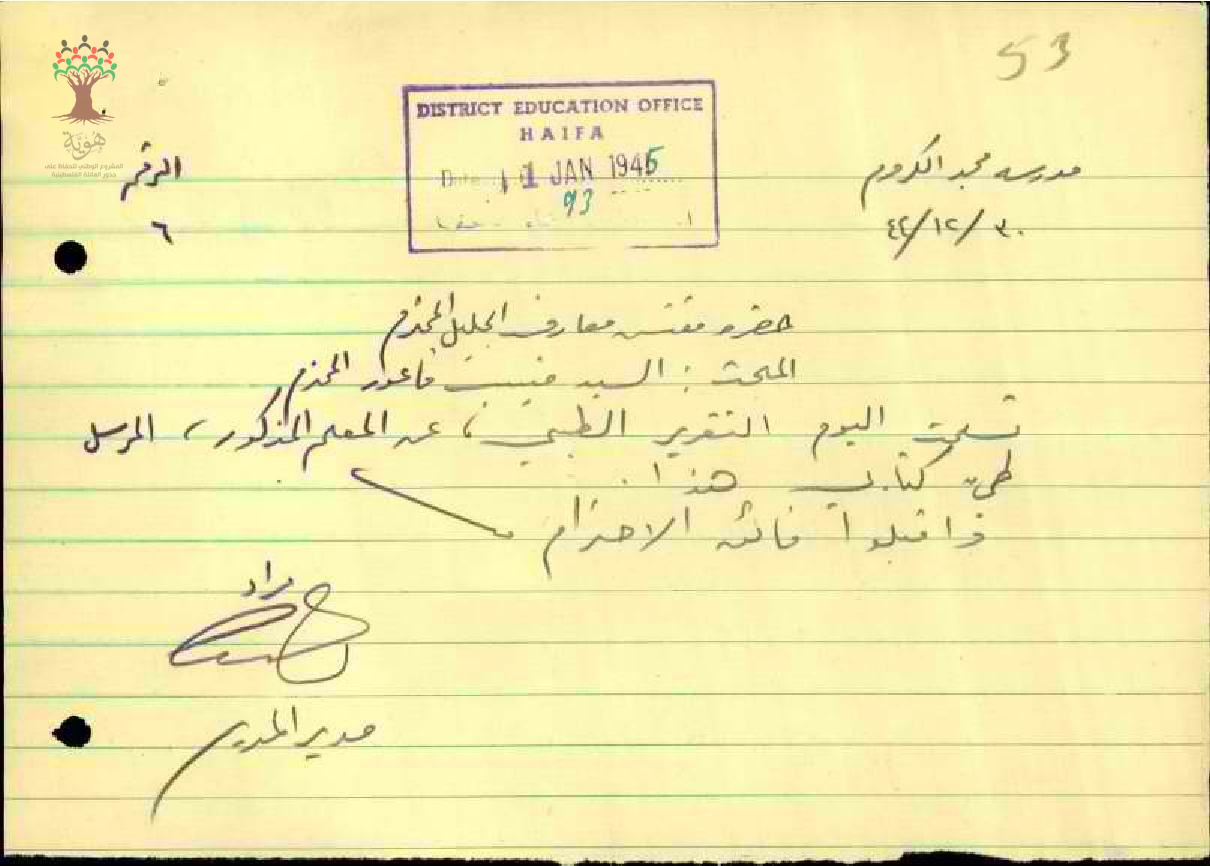 53
هوية
المشروع الوطني للحفاظ على
جذور العائلة الفلسطينية
DISTRICT EDUCATION OFFICE
HAIFA
Date 11 JAN 1945
93
مدرسة مجد الكروم
الرقم
٣٠/١٢/٤٤
٦
حضرة مفتش معارف الجليل المحترم
المبحث : السيد فاعور المحترم
تسلمت اليوم التقرير الطبي، عن المعلم المذكور، المرسل
طي كتابي هذا.
فاقبلوا فائق الاحترام
مراد
مدير المدرسة